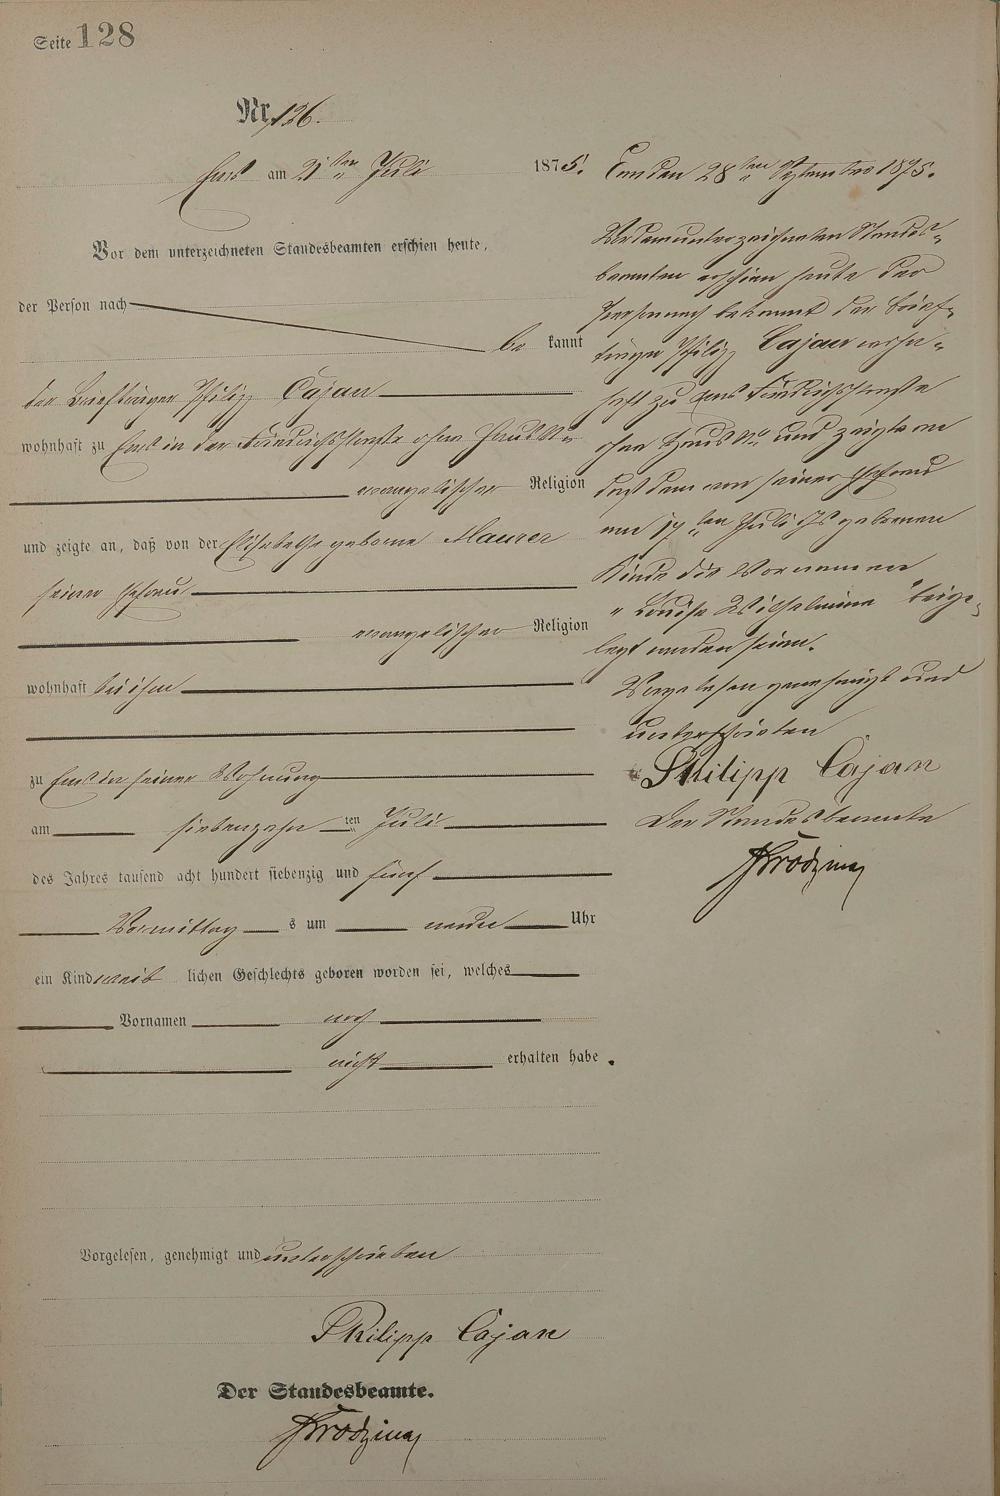 Seite 128
Nr. 126.
Ems am 21ten Juli 1875.
Vor dem unterzeichneten Standesbeamten erschien heute,
der Person nach
be kannt
der Briefträger Philipp Cajan
wohnhaft zu Ems in der Friedrichsstraße ohne Haus No
evangelischer Religion
und zeigte an, daß von der Elisabethe geborne Maurer
seiner Ehefrau
evangelischer Religion
wohnhaft bei ihm
zu Ems in seiner Wohnung
am siebenzehn ten Juli
des Jahres tausend acht hundert siebenzig und fünf
Vormittag s um neun Uhr
ein Kind weib lichen Geschlechts geboren worden sei, welches
Vornamen noch
nicht erhalten habe.
Vorgelesen, genehmigt und unterschrieben
Philipp Cajan
Der Standesbeamte.
Ems den 28ten September 1875.
Vor dem unterzeichneten Standes-
beamten erschien heute der
Person nach bekannt der Brief-
träger Philipp Cajan wohn-
haft zu Ems Friedrichsstraße
ohne Haus No und zeigte an
daß dem von seiner Ehefrau
am 17ten Juli Js geborenen
Kinde die Vornamen
"Louise Wilhelmine" beige-
legt worden seien.
Vorgelesen genehmigt und
unterschrieben
Philipp Cajan
Der Standesbeamte